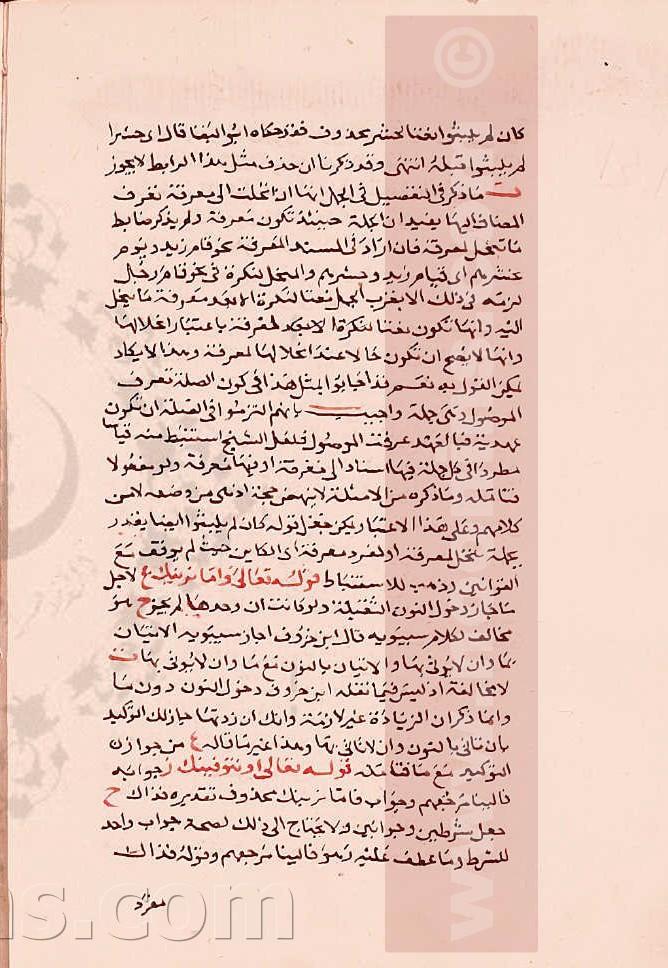 كان لم يلبثوا نعتا لحشر محذوف فقد حكاه ابو البقا قال اى حشرا
لم يلبثوا قبله انتهى وقد ذكرنا ان حذف مثل هذا الرابط لا يجوز
ت ما ذكر فى التفصيل فى الجمل انها ان انحلت الى معرفة تعرف
المضاف اليها يفيد ان الجملة حينئذ تكون معرفة ولم يذكر ضابط
ما تنحل لمعرفة فان اراد فى المسند المعرفة نحو قام زيد ويوم
نحشرهم اى قيام زيد وحشرهم والمنحل لنكرة فى نحو قام رجل
لزمه فى ذلك الا يعرب الجمل نعتا لنكرة الا بعد معرفة ما ينحل
اليه وانها تكون نعتا لنكرة لا بعد لمعرفة باعتبار انحلالها
وانها لا يصح ان تكون حالا عند انحلالها لمعرفة وهذا لا يكاد
يمكن القول به نعم قد اجابوا بمثل هذا فى كون الصلة تعرف
الموصول وهى جملة واجيب بانهم التزموا فى الصلة ان تكون
عهدية فبالعهد عرفت الموصول فلعل الشيخ استنبط منه قياسا
مطردا فى كل جملة فيها اسناد الى معرفة او فيها معرفة ولو مفعولا
فتامله وما ذكره من الامثلة لا ينهض حجة اذ هى من وضعه لا من
كلامهم وعلى هذا الاعتبار يمكن جعل قوله كان لم يلبثوا ايضا يقدر
بجملة تنحل لمعرفة او لمفرد معرفة اى الكاين حيث لم يوقف مع
القوانين وذهب للاستنباط قوله تعالى واما نرينك ع لاجل
ما جاز دخول النون الثقيلة ولو كانت ان وحدها لم يجز ح هو
مخالف لكلام سيبويه قال ابن خروف اجاز سيبويه الاتيان
بما وان لا يوتى بها والاتيان بالنون مع ما وان لا يوتى بها ت
لا مخالفة اذ ليس فيما نقله ابن خروف دخول النون دون ما
وانما ذكر ان الزيادة غير لازمة وانك ان زدتها جاز لك التوكيد
بان تاتى بالنون وان لا تاتى بها وهذا غير ما قاله ع من جواز ان
التوكيد مع ما فتامله قوله تعالى او نتوفينك ز جوابه
فالينا مرجعهم وجواب فاما نرينك محذوف تقديره فذاك ح
جعل شرطين وجوابين ولا يحتاج الى ذلك لصحة جواب واحد
للشرط وما عطف عليه وهو فالينا مرجعهم وقوله فذاك
مفرد
www.
©
ns.com